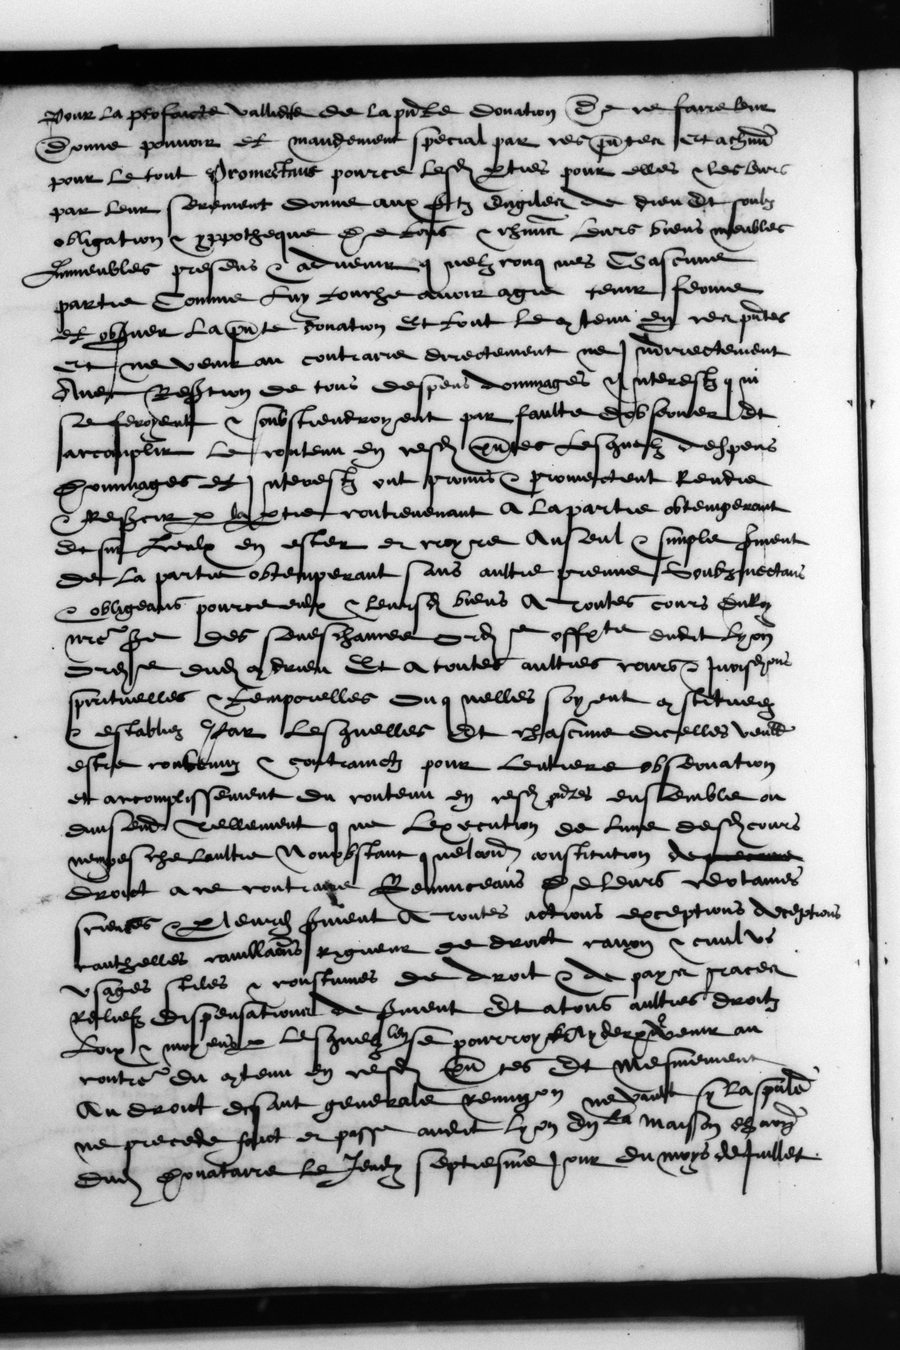 pour la perfaicte vallidite de la pnte donation de ce faire leur
donne pouvoir et mandement special par ces pntes et achmin
pour le tout promectans pour ce lesd pties pour elles & les leurs
par leur serement donne aux stz Evangiles de dieu et soubz
obligation & yppotheque de tous & chun leurs biens meubles
Immeubles presens & advenir quelzconques Chascune
partie Comme luy touche avoir agre tenir ferme
et observer la pnte donation et tout le contenu en ces pntes
et ne venir au contraire directement ne Indirectement
Avec Restion de tous despens dommages & Interestz qui
se feroyent & soubstiendroyent par faulte dobserver et
accomplir le contenu en cesd pntes lesquelz despens
Dommages et Interestz ont promis & promectent Rendre
& Restituer p la ptie contrevenant A la partie obtemperant
et sur Iceulx en ester et croyre Au seul & simple sment
de la partie obtemperant sans aultre preuve Soubzmectans
& obligeans pour ce eulx & leursd biens A toutes cours du Roy
nre sre des seneschaucee ordre offte dudit lyon
dud et A toutes aultres cours &
spirituelles & temporelles ou quelles soyent constituez
& establiez Par lesquelles et chascune dicelles veullent
estre contrainctz & contrainctz pour lentiere observation
et accomplissement du contenu en cesd pntes ensemble ou
tellement que lexecution de lune desd cours
nempesche laultre Nonobstant quelconq constitution de
droict a ce contraire Renunceans de leurs certaines
sciences & p leursd sment A toutes actions exceptions deceptions
cauthelles cavillaons Rigueur de droict canon & civil us
usages stiles & coustumes de droit & de pays graces
Reliefz dispensations de sment et a tous aultres droitz
loix & moyens p lesquelz lon se pourroyt Ayder & venir au
contre du contenu en cesd pntes et Mesmement
Au droict disant generale renunon ne valoir sy la spalle
ne precede faict et passe audit lyon En la maison
dud donataire le Jeudy septiesme Jour du moys de Juillet